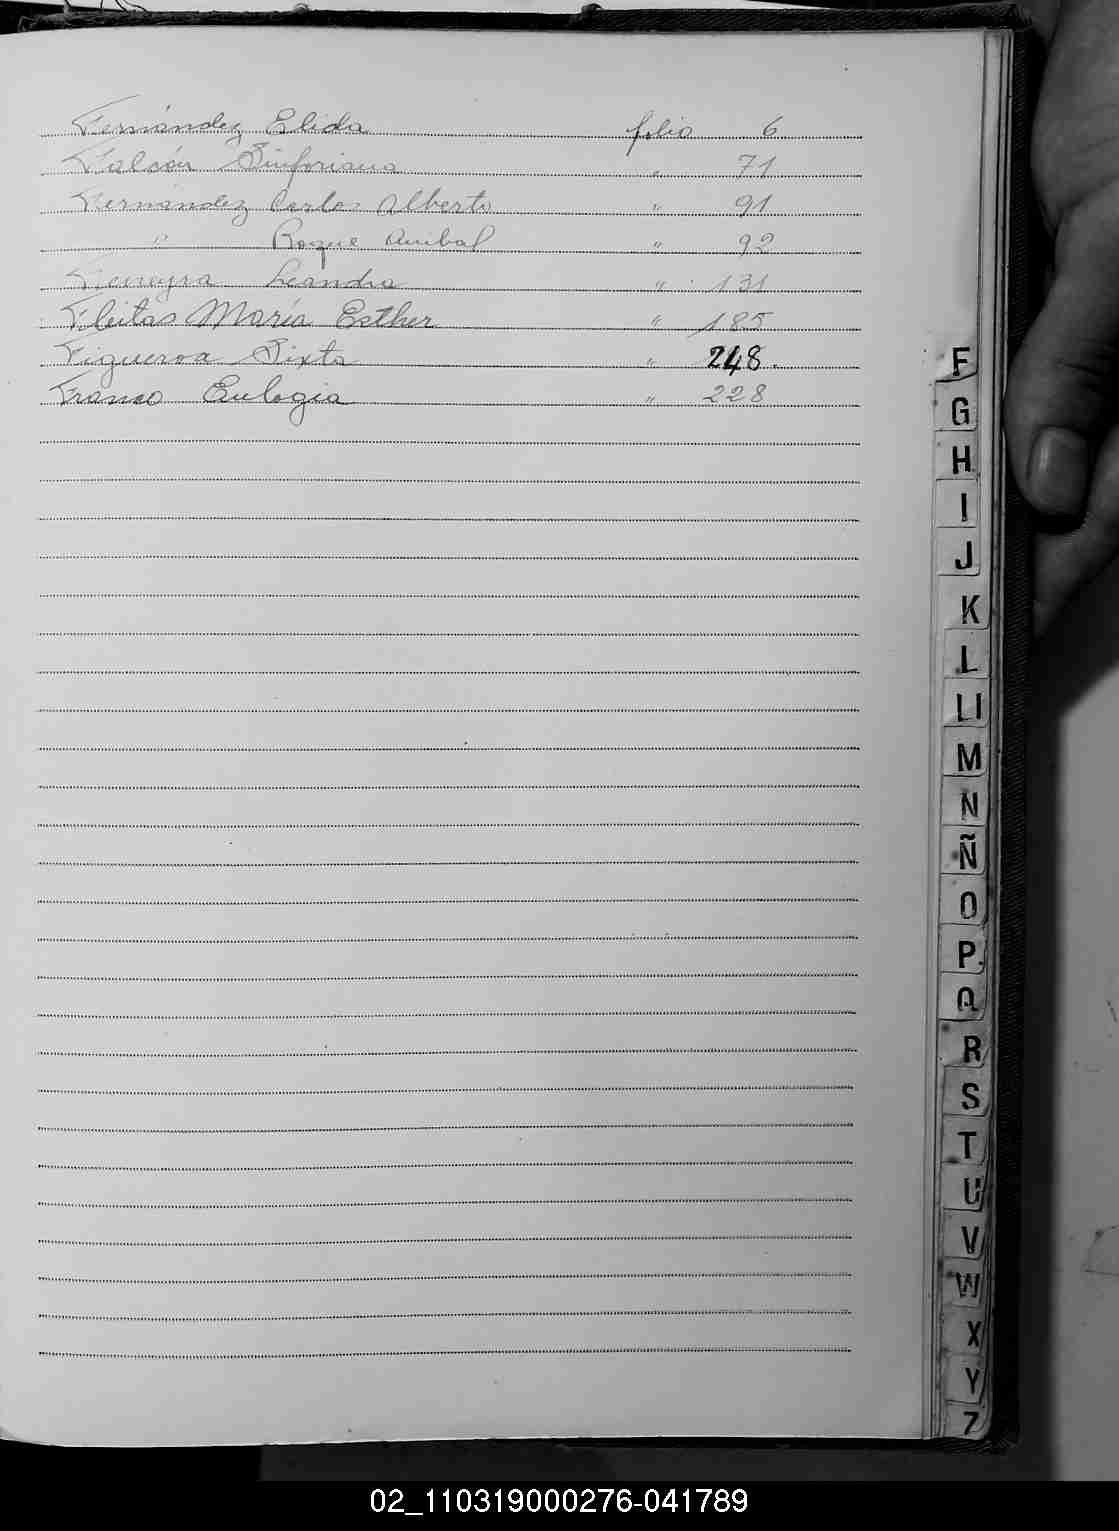 Fernández Elida folio 6
Falcón Sinforiana " 71
Fernández Carlos Alberto " 91
" Roque Anibal " 92
Ferreyra Leandra " 131
Fleitas María Esther " 185
Figueroa Sixta " 248.
Franco Eulogia " 228
F
G
H
I
J
K
L
Ll
M
N
Ñ
O
P
Q
R
S
T
U
V
W
X
Y
Z
02_110319000276-041789